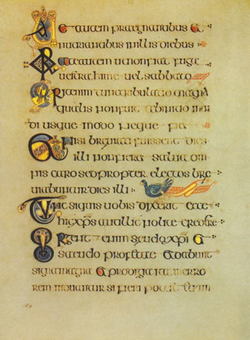 Uae autem praegnantibus et
nutrientibus in illis diebus
Orate autem ut non fiat fuga
uestra hieme uel sabbato
Erit enim tunc tribulatio magna
qualis non fuit ab initio mun
di usque modo neque fi
et nisi breuiati fuissent dies
illi non fieret salua om
nis caro sed propter electos breui
abuntur dies illi
Tunc si quis uobis dixerit ecce
hic xps aut illic nolite credere
Surgent enim seudo xpi et
seudo profetae et dabunt
signa magna et prodigia ita ut in erro
rem si fieri potest